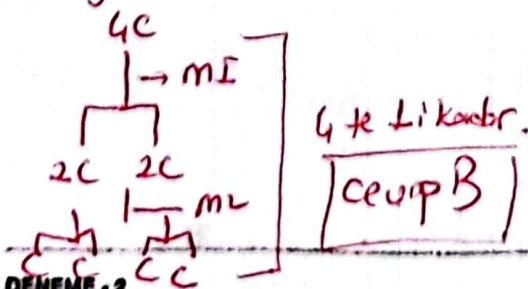 4C
→ mI
2C 2C
m2
C C C C
4 te
cevap B
DENEME - 2